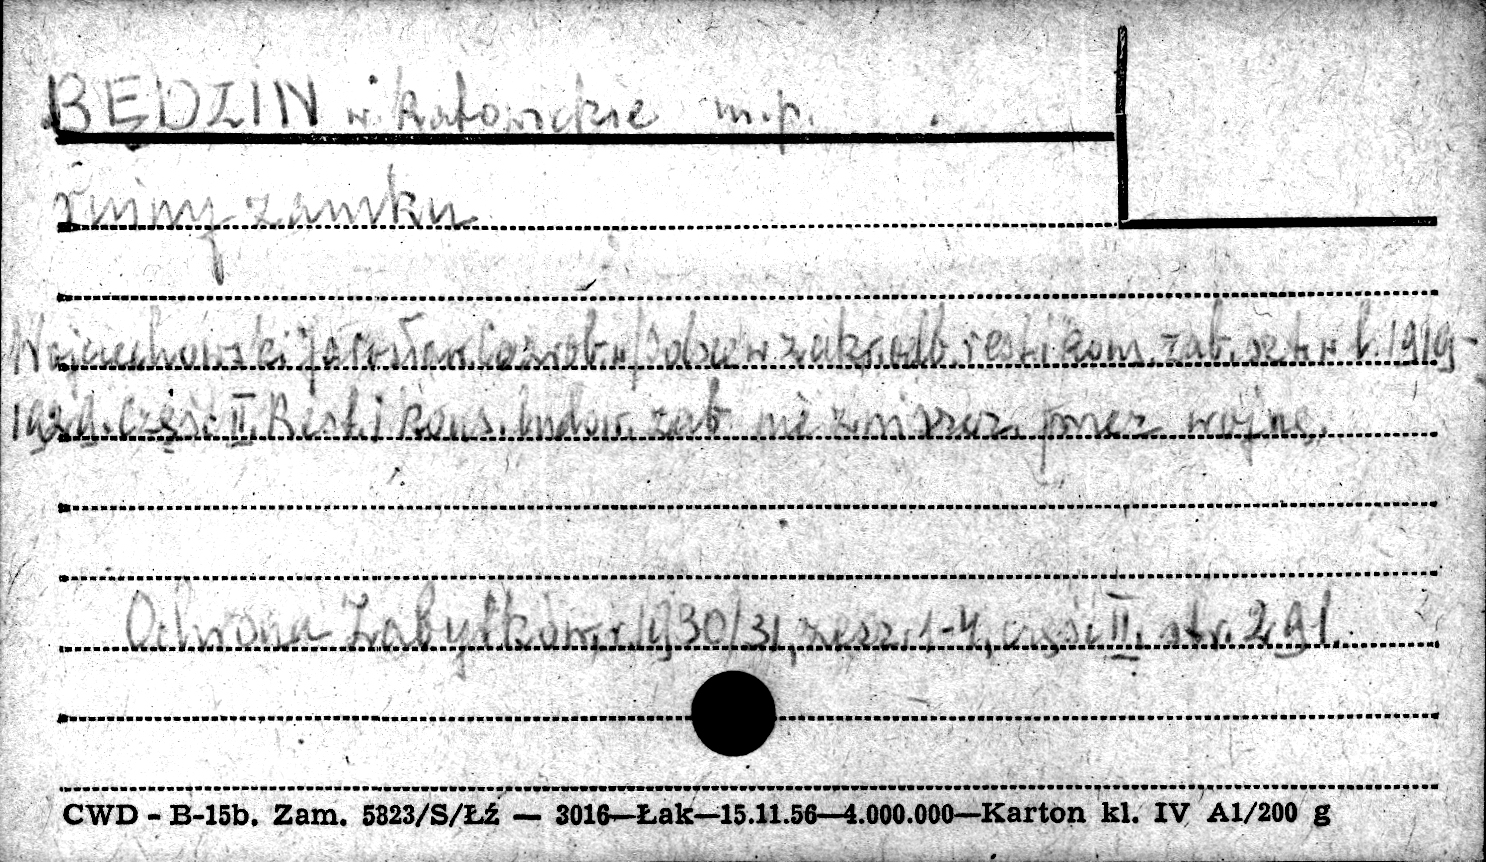 BĘDZIN w. katowickie m.p.
ruiny zamku
Wojciechowski Jarosław. Co zrob. w Polsce w zakr. odb. rest. i kons. zab. szt. w l. 1919-
1929. Część II. Rest. i kons. budow. zab. nie zniszcz. przez wojnę.
Ochrona Zabytków, r. 1930/31, zesz. 1-4, część II. str. 291.
CWD - B-15b. Zam. 5823/S/Łź — 3016—Łak—15.11.56—4.000.000—Karton kl. IV A1/200 g